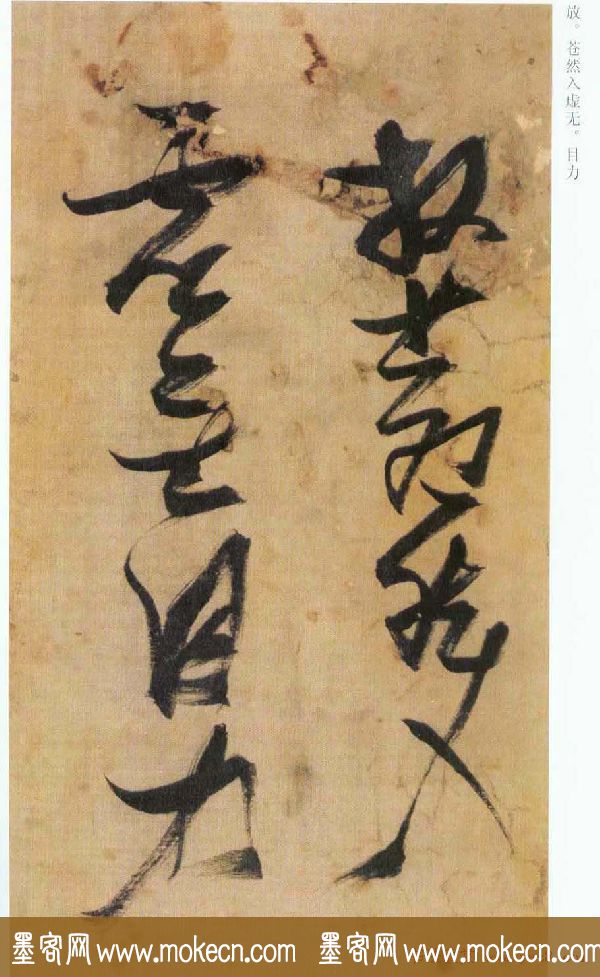 放。苍然入虚无。目力
放苍然入
虚无目力
墨客网 www.mokecn.com 墨客网 www.mokecn.com